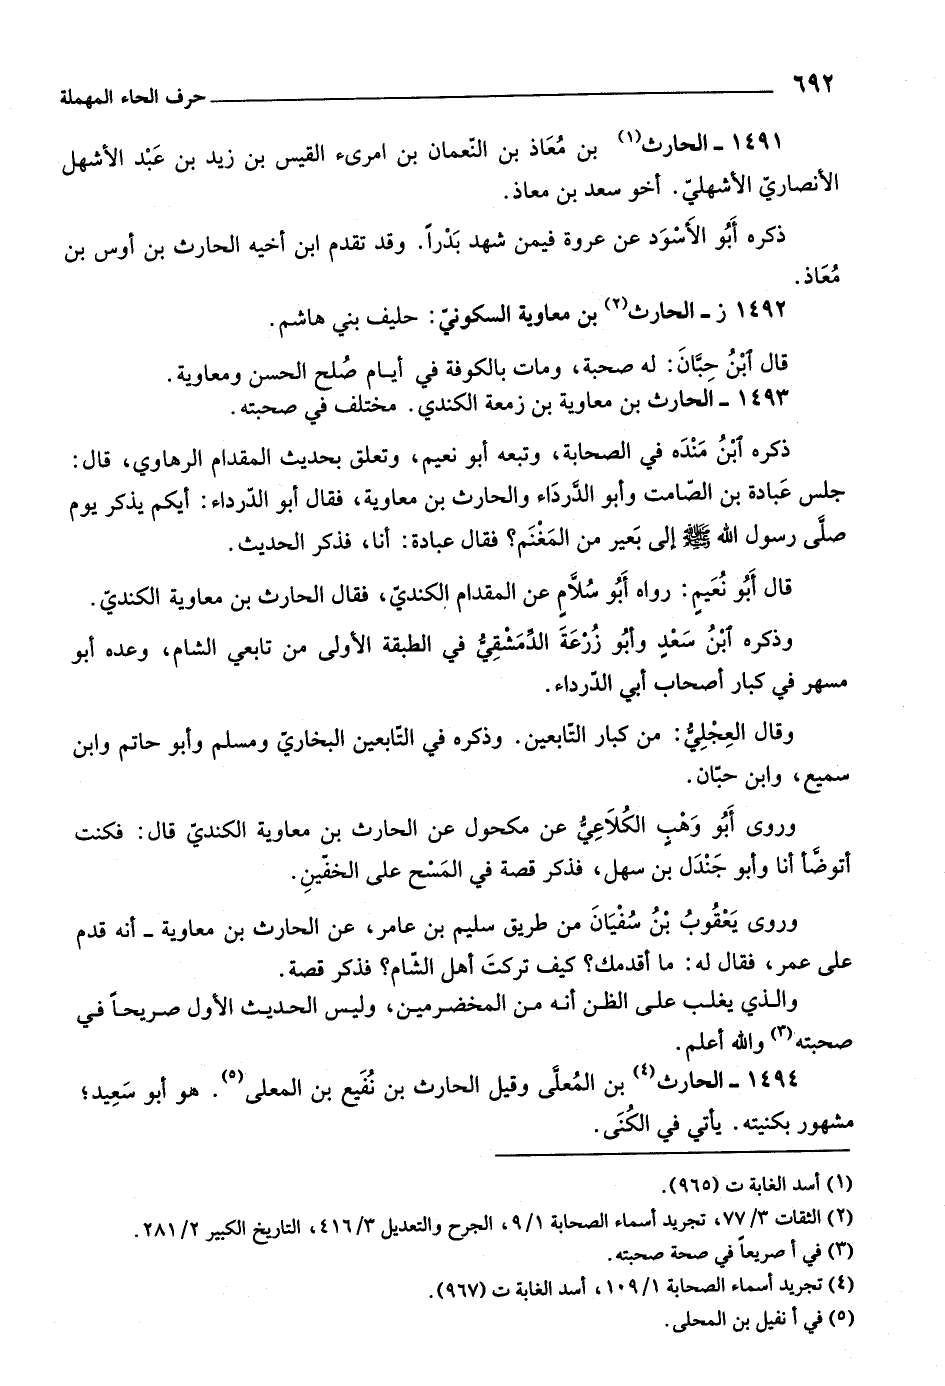 ٦٩٢ حرف الحاء المهملة
١٤٩١ ـ الحارث(١) بن مُعَاذ بن النّعمان بن امرىء القيس بن زيد بن عَبْد الأشهل
الأنصاريّ الأشهليّ. أخو سعد بن معاذ.
ذكره أَبُو الأَسْوَد عن عروة فيمن شهد بَدْراً. وقد تقدم ابن أخيه الحارث بن أوس بن
مُعَاذ.
١٤٩٢ ز ـ الحارث(٢) بن معاوية السكونيّ: حليف بني هاشم.
قال ٱبْنُ حِبَّانَ: له صحبة، ومات بالكوفة في أيـام صُلح الحسن ومعاوية.
١٤٩٣ ـ الحارث بن معاوية بن زمعة الكندي. مختلف في صحبته.
ذكره ٱبْنُ مَنْدَه في الصحابة، وتبعه أبو نعيم، وتعلق بحديث المقدام الرهاوي، قال:
جلس عَبادة بن الصّامت وأبو الدَّردَاء والحارث بن معاوية، فقال أبو الدّرداء: أيكم يذكر يوم
صلَّى رسول الله ﷺ إلى بَعير من المَغْنَم؟ فقال عبادة: أنا، فذكر الحديث.
قال أَبُو نُعَيمٍ: رواه أَبُو سُلَّامٍ عن المقدام الكنديّ، فقال الحارث بن معاوية الكنديّ.
وذكره ٱبْنُ سَعْدٍ وأبُو زُرْعَةَ الدِّمَشْقِيُّ في الطبقة الأولى من تابعي الشام، وعده أبو
مسهر في كبار أصحاب أبي الدّرداء.
وقال العِجْلِيُّ: من كبار التّابعين. وذكره في التّابعين البخاريّ ومسلم وأبو حاتم وابن
سميع، وابن حبّان.
وروى أَبُو وَهْبٍ الكُلَاعِيُّ عن مكحول عن الحارث بن معاوية الكنديّ قال: فكنت
أتوضَّأ أنا وأبو جَنْدَل بن سهل، فذكر قصة في المَسْح على الخفّينِ.
وروى يَعْقُوبُ بْنُ سُفْيَانَ من طريق سليم بن عامر، عن الحارث بن معاوية ـ أنه قدم
على عمر، فقال له: ما أقدمك؟ كيف تركتَ أهل الشّام؟ فذكر قصة.
والـذي يغلب علـى الظن أنـه من المخضـرميـن، وليس الحديث الأول صريحـاً في
صحبته(٣) والله أعلم.
١٤٩٤ ـ الحارث(٤) بن المُعلَّى وقيل الحارث بن نُفَيع بن المعلى(٥). هو أبو سَعِيد؛
مشهور بكنيته. يأتي في الكُنَى.
(١) أسد الغابة ت (٩٦٥).
(٢) الثقات ٣/ ٧٧، تجريد أسماء الصحابة ١/ ٩، الجرح والتعديل ٣/ ٤١٦، التاريخ الكبير ٢/ ٢٨١.
(٣) في أ صريعاً في صحة صحبته.
(٤) تجريد أسماء الصحابة ١/ ١٠٩، أسد الغابة ت (٩٦٧).
(٥) في أ نفيل بن المحلى.